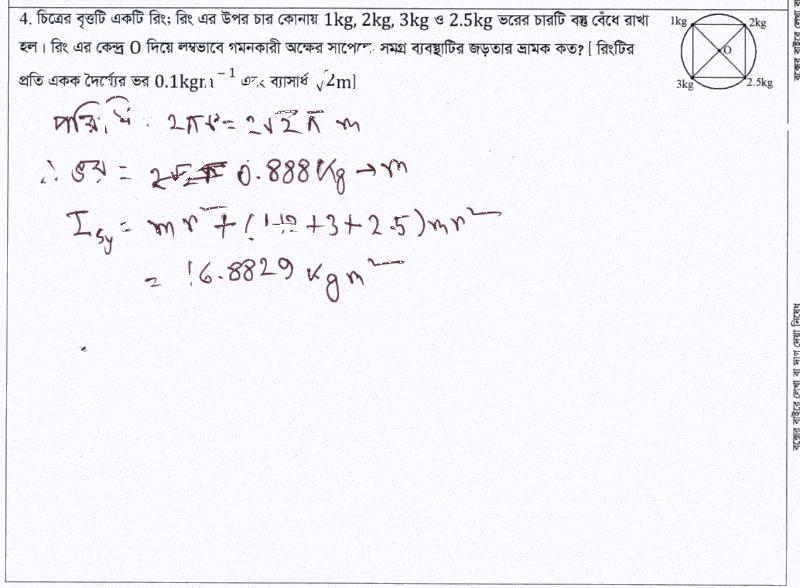 4. চিত্রের বৃত্তটি একটি রিং; রিং এর উপর চার কোনায় 1kg, 2kg, 3kg ও 2.5kg ভরের চারটি বস্তু বেঁধে রাখা
হল। রিং এর কেন্দ্র O দিয়ে লম্বভাবে গমনকারী অক্ষের সাপেক্ষে সমগ্র ব্যবস্থাটির জড়তার ভ্রামক কত? [ রিংটির
প্রতি একক দৈর্ঘ্যের ভর 0.1kgm⁻¹ এবং ব্যাসার্ধ √2m]
1kg 2kg
O
3kg 2.5kg
পরিধি . 2πr = 2√2π m
∴ ভর = 0.888kg → m
I_sy = mr² + (1+2+3+2.5)mr²
= 16.8829 kgm²